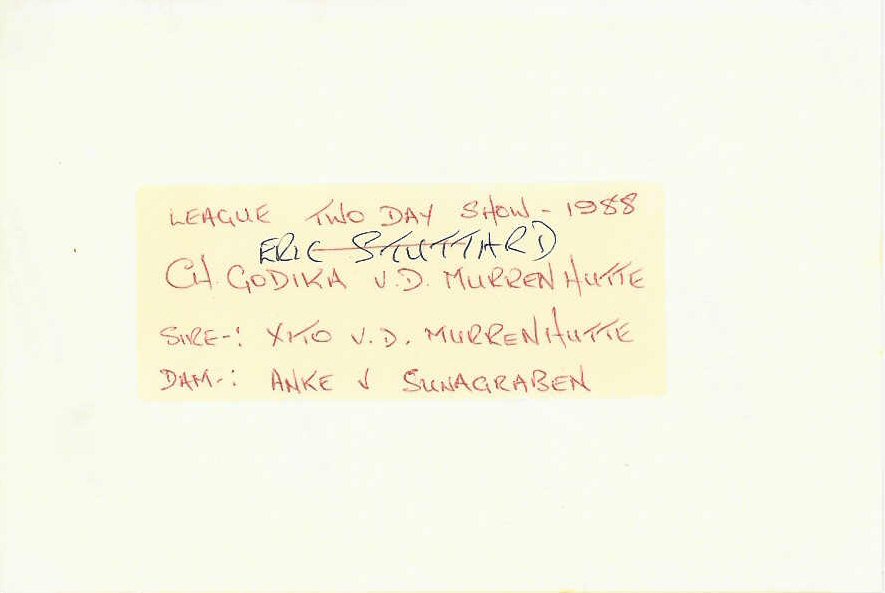 LEAGUE TWO DAY SHOW - 1988
ERIC STUTTARD
CH. GODIKA V.D. MURRENHUTTE
SIRE-: XITO V.D. MURRENHUTTE
DAM-: ANKE V SUNAGRABEN